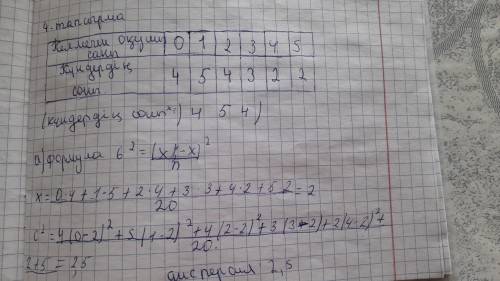 4-тапсырма
Келмеген оқушы саны 0 1 2 3 4 5
Күндердің саны 4 5 4 3 2 2
(күндердің саны 4 5 4)
а) формула б² = (x - x)² / n
x = 0·4+1·5+2·4+3·3+4·2+5·2 / 20 = 2
б² = 4(0-2)²+5(1-2)²+4(2-2)²+3(3-2)+2(4-2)²+ / 20
= 2,5
дисперсия 2,5